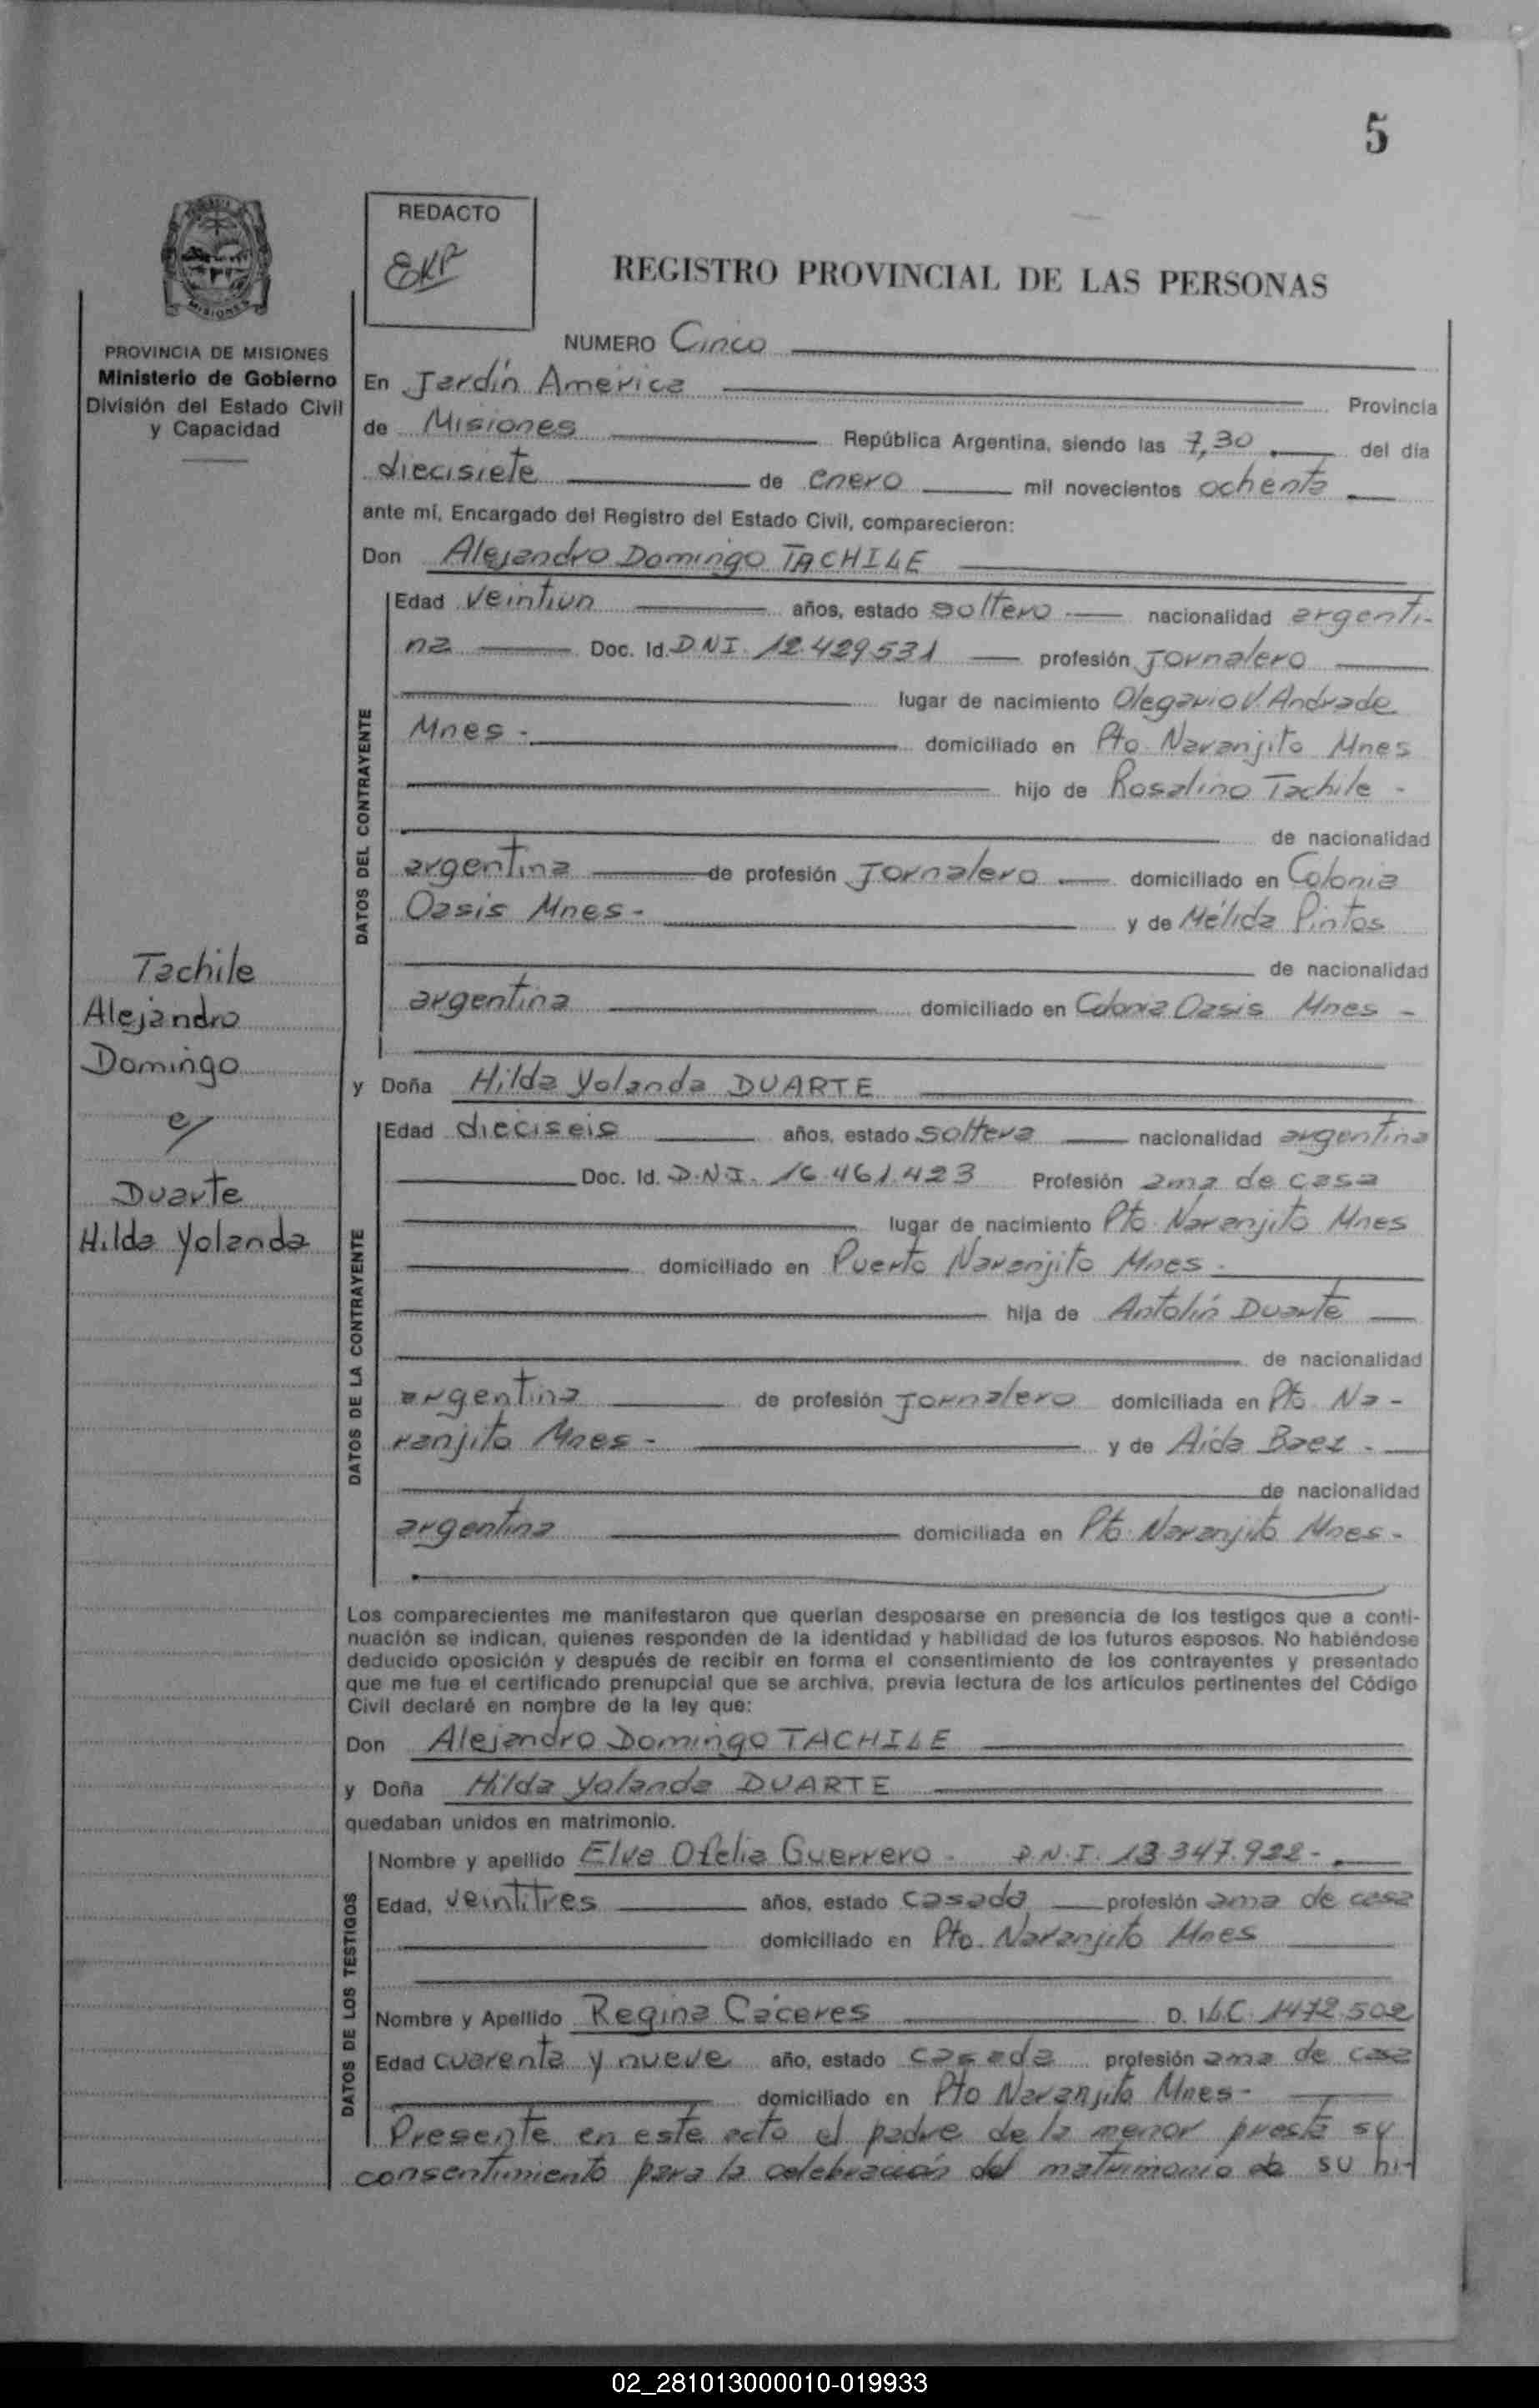 5
REDACTO
EKP
REGISTRO PROVINCIAL DE LAS PERSONAS
MISIONES
PROVINCIA DE MISIONES
Ministerio de Gobierno
División del Estado Civil
y Capacidad
NUMERO Cinco
En Jardín América Provincia
de Misiones República Argentina, siendo las 7,30 del día
diecisiete de enero mil novecientos ochenta
ante mí, Encargado del Registro del Estado Civil, comparecieron:
Don Alejandro Domingo TACHILE
DATOS DEL CONTRAYENTE
Edad veintiun años, estado soltero nacionalidad argenti-
na Doc. Id. DNI. 12.429.531 profesión Jornalero
lugar de nacimiento Olegario V. Andrade
Mnes - domiciliado en Pto Naranjito Mnes
hijo de Rosalino Tachile -
de nacionalidad
argentina de profesión Jornalero domiciliado en Colonia
Oasis Mnes - y de Mélida Pintos
de nacionalidad
argentina domiciliado en Colonia Oasis Mnes -
Tachile
Alejandro
Domingo
y
Duarte
Hilda Yolanda
y Doña Hilda Yolanda DUARTE
DATOS DE LA CONTRAYENTE
Edad dieciseis años, estado soltera nacionalidad argentina
Doc. Id. D.N.I. 16.461.423 Profesión ama de casa
lugar de nacimiento Pto Naranjito Mnes
domiciliado en Puerto Naranjito Mnes -
hija de Antolín Duarte
de nacionalidad
argentina de profesión Jornalero domiciliada en Pto Na-
ranjito Mnes - y de Aida Baez -
de nacionalidad
argentina domiciliada en Pto Naranjito Mnes -
Los comparecientes me manifestaron que querían desposarse en presencia de los testigos que a conti-
nuación se indican, quienes responden de la identidad y habilidad de los futuros esposos. No habiéndose
deducido oposición y después de recibir en forma el consentimiento de los contrayentes y presentado
que me fue el certificado prenupcial que se archiva, previa lectura de los artículos pertinentes del Código
Civil declaré en nombre de la ley que:
Don Alejandro Domingo TACHILE
y Doña Hilda Yolanda DUARTE
quedaban unidos en matrimonio.
DATOS DE LOS TESTIGOS
Nombre y apellido Elva Ofelia Guerrero - D.N.I. 13.347.922 -
Edad, veintitres años, estado casada profesión ama de casa
domiciliado en Pto. Naranjito Mnes
Nombre y Apellido Regina Cáceres D. I L.C. 1472.502
Edad cuarenta y nueve año, estado casada profesión ama de casa
domiciliado en Pto Naranjito Mnes -
Presente en este acto el padre de la menor presta su
consentimiento para la celebración del matrimonio de su hi-
02_281013000010-019933